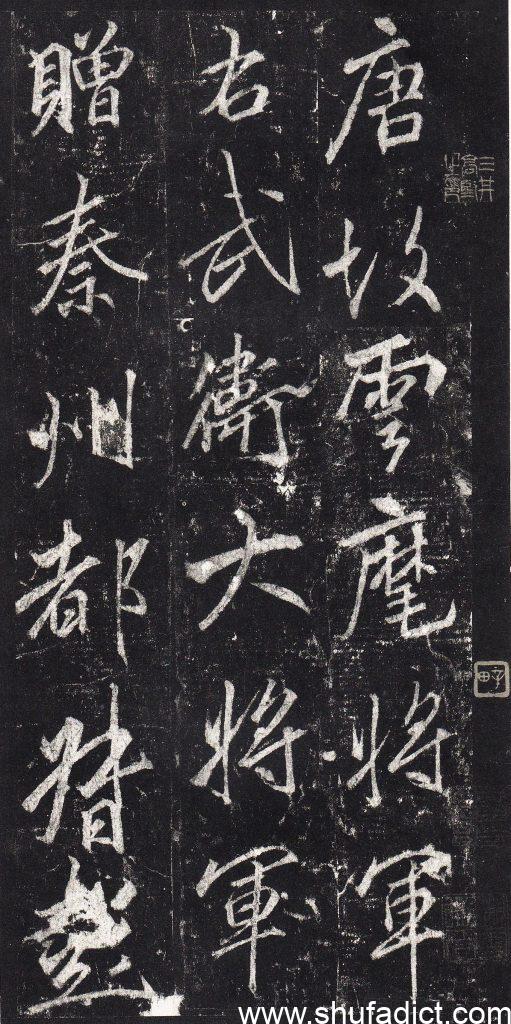 唐故雲麾将軍
右武衛大将軍
贈秦州都督
www.shufadict.com